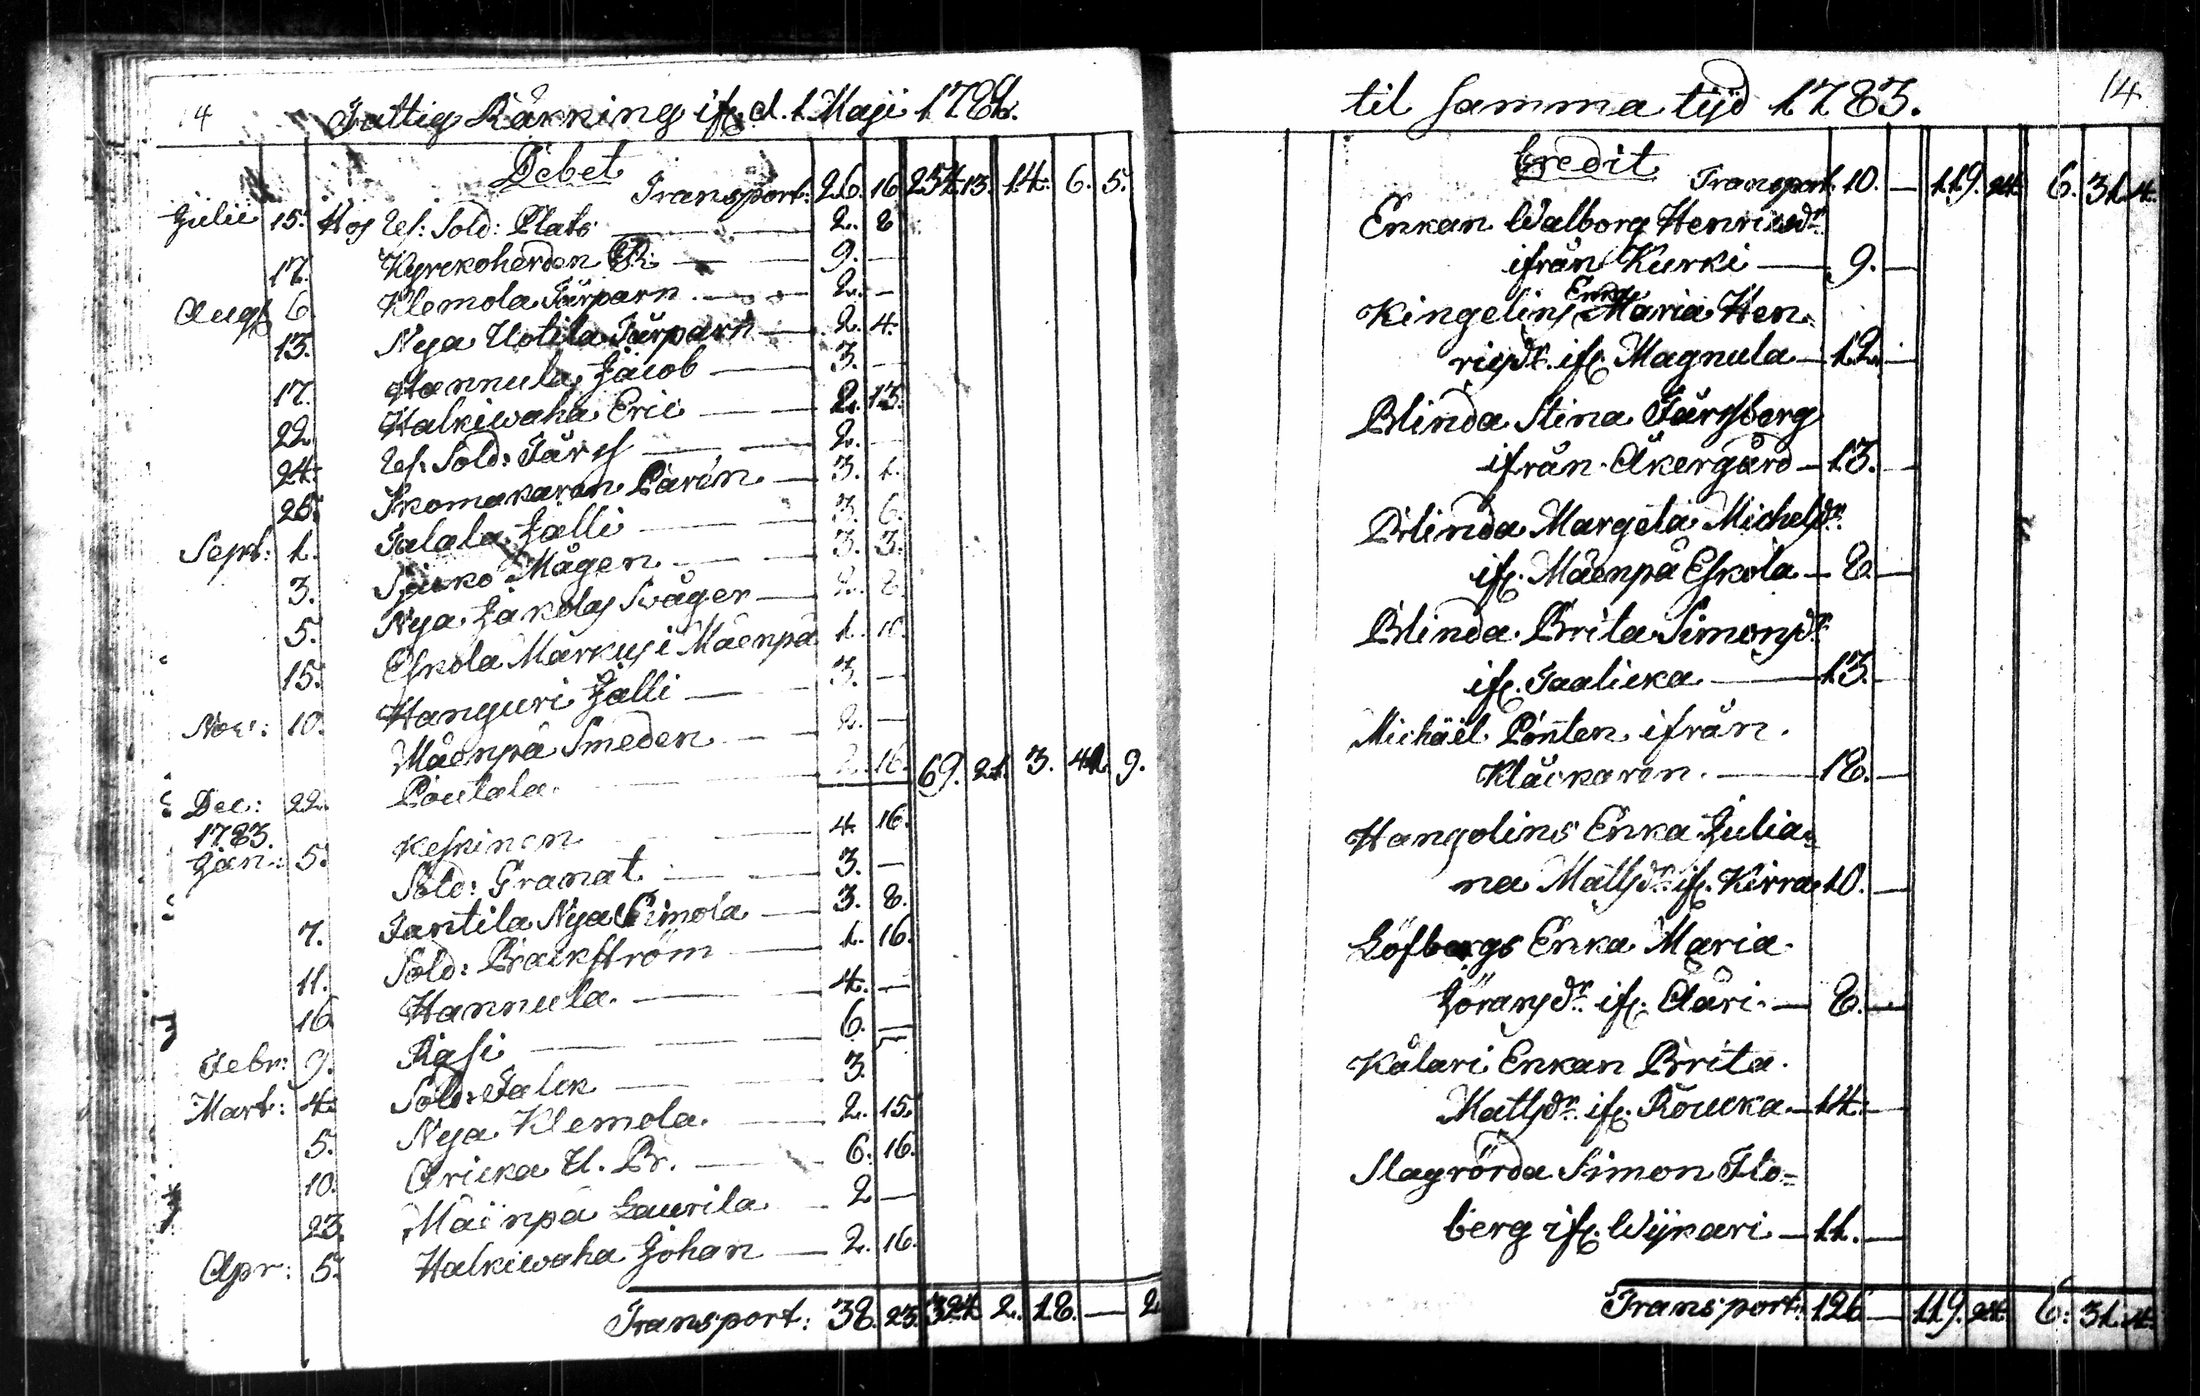 14 Fattig Räkning ifr. d. 1 Maji 1782.
Debet
Transport: 26. 16. 254. 13. 14. 6. 5.
Julii 15. Hos Ref: Sold: Plats — 2. 8
17. Kyrckoherden — 9. —
Aug. 6. Klemola Torparn — 2. —
13. Nya Uotila Torparn — 2. 4.
17. Hannula Jacob — 3. —
22. Halkiwaha Eric — 2. 13.
24. Ref: Sold: Färsf — 2. —
26. Skomakaren Parén — 3. 1.
Sept: 1. Talala Jalli — 3. 6.
3. Sjäko Mågen — 3. 3.
5. Nya Jakolas Swåger — 2. 8.
15. Eskola Markus i Mäenpä 1. 10.
Nov: 10. Hanguri Jalli — 3. —
Mäenpä Smeden — 2. —
Dec: 22. Poutala — 2. 16. 69. 21. 3. 42. 9.
1783.
Jan: 5. Keskinen — 4. 16.
Sold: Granat — 3. —
7. Jantila Nya Simola — 3. 8.
11. Sold: Brackström — 1. 16.
16 Hannula — 4. —
Febr: 9. Rasi — 6. —
Mart: 4. Sold: Falck — 3.
5. Nya Klemola — 2. 15.
10. Aricka U. Br. — 6. 16.
23. Mäenpä Laurila — 2 —
Apr: 5. Halkiwaha Johan — 2. 16.
Transport: 38. 23. 324. 2. 18. — 2
til samma tijd 1783. 14
Credit
Transport 10. — 119. 24. 6. 31. 4.
Enkan Walborg Henricsdr.
ifrån Kurki — 9. —
Enka
Kingelins Maria Hen-
ricsdr. ifr. Magnula — 12. —
Blinda Stina Färsberg
ifrån Åkergård — 13. —
Blinda Margeta Michelsdr.
ifr. Mäenpä Eskola — 8. —
Blinda Brita Simonsdr.
ifr. Taalicka — 13. —
Michäel Pontén ifrån
Kläckaren — 18. —
Hangolins Enka Julia-
na Mattsdr. ifr. Kirra 10. —
Löfbergs Enka Maria
Jöransdr. ifr. Ääri — 8. —
Kålari Enkan Brita
Mattsdr. ifr. Roucka — 14. —
Slagrörda Simon Flo=
berg ifr. Wijkari — 11. —
Transport: 126 — 119. 24. 6. 31. 4.